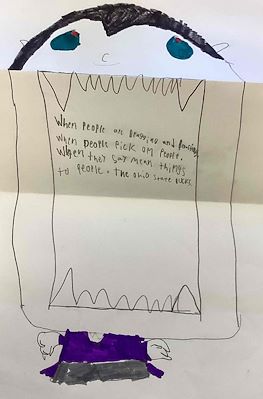 When people are bragging and
when people pick on people,
when they say mean things
to people. the ohio state